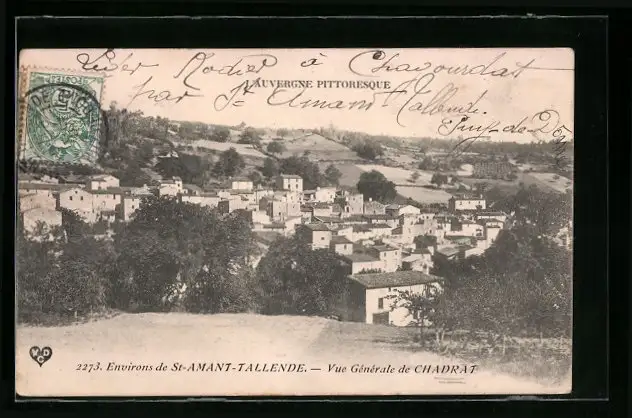 L'AUVERGNE PITTORESQUE
Rodier à Chavourdat
par St Amant Tallende
Puy-de-D
POSTES
MTIL
DVC
2273. Environs de St-AMANT-TALLENDE. — Vue Générale de CHADRAT